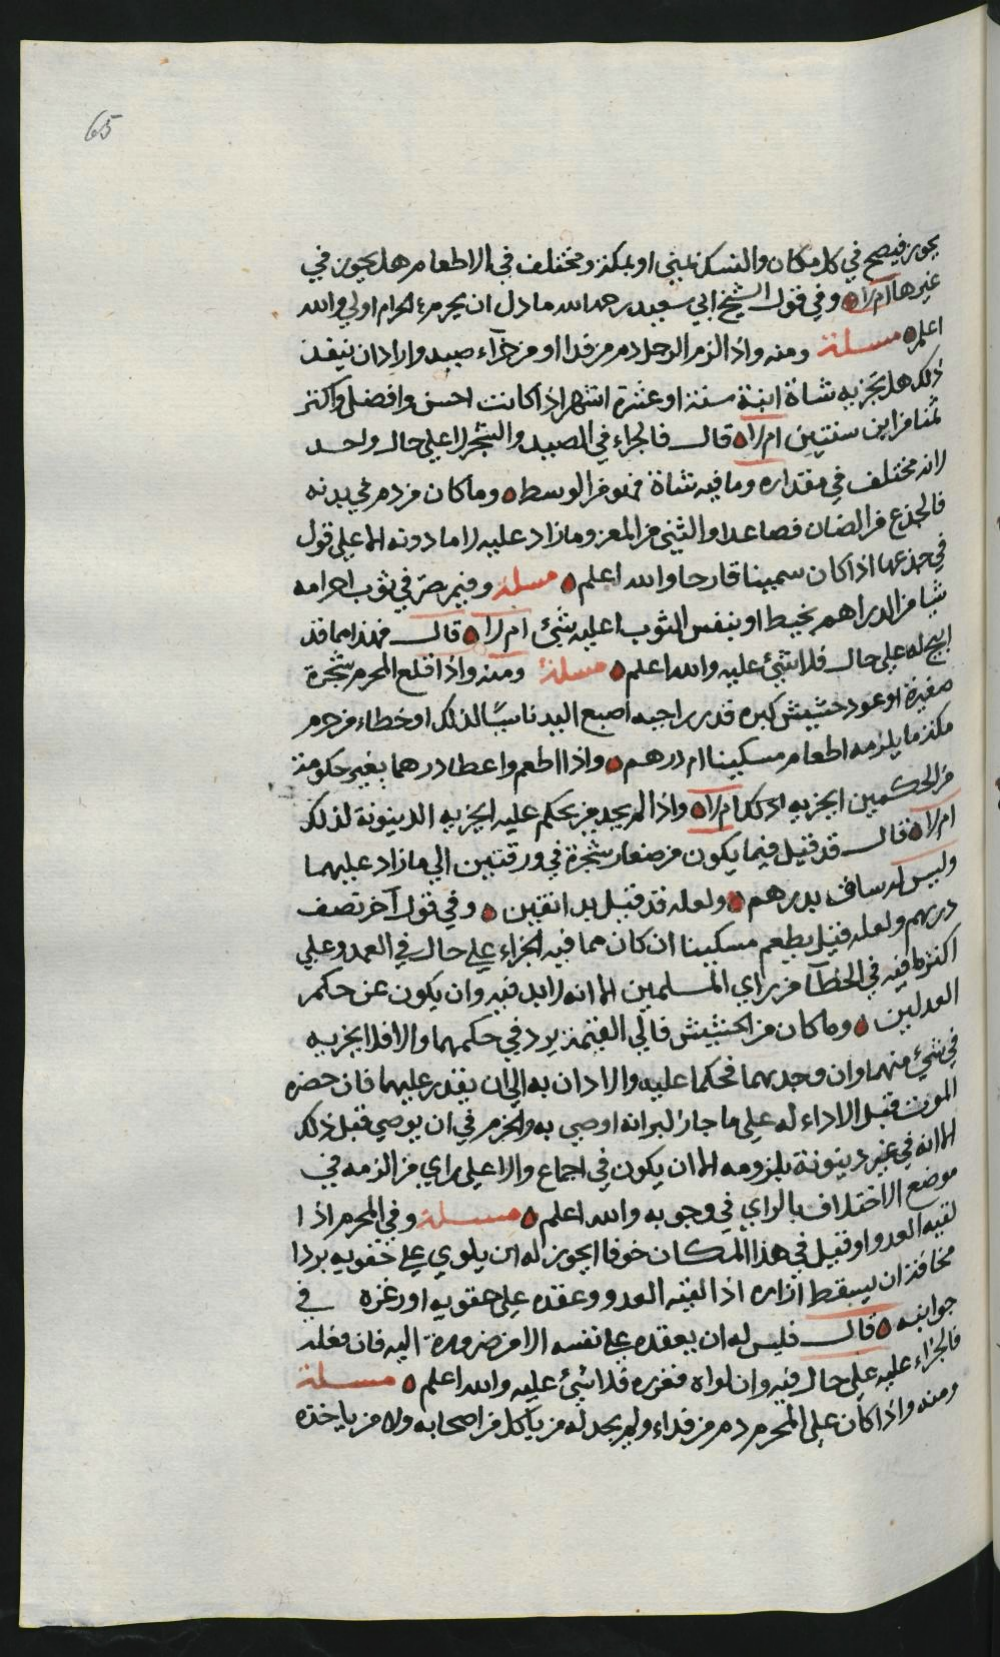 65
يجوز فيصح في كل مكان والنسك بمنى او بمكة ومختلف في الاطعام هل يجوز في
غيرها ام لا وفي قول الشيخ ابي سعيد رحمه الله ما دل ان بحرم الحرام اولى والله
اعلم مسئلة ومنه واذا لزم الرجل دم من فدا او من جزآء صيد واراد ان ينفذ
ذلك هل تجزيه شاة ابنة سنة او عشرة اشهر اذا كانت احسن وافضل واكثر
ثمنا من ابن سنتين ام لا قال فالجزاء في الصيد والشجر لا على حال واحد
لانه مختلف في مقداره وما فيه شاة فهو من الوسط وما كان من دم في بدنه
فالجذع من الضان فصاعدا والثني من المعز وما زاد عليه لا ما دونه الا على قول
في جذعها اذا كان سمينا قارحا والله اعلم مسئلة وفيمن صر في ثوب احرامه
شيا من الدراهم بخيط او بنفس الثوب اعليه شئ ام لا قال فهذا مما قد
ابيح له على حال فلا شئ عليه والله اعلم مسئلة ومنه واذا قلع المحرم شجرة
صغيرة او عود حشيش كبره قدر راجبه اصبع اليد ناسيًا لذلك او خطاء من حرم
مكة ما يلزمه اطعام مسكينا ام درهم واذا اطعم واعطا درهما بغير حكومة
من الحكمين ايجزيه ذلك ام لا واذا لم يجد من يحكم عليه ايجزيه الدينونة لذلك
ام لا قال قد قيل فيما يكون من صغار شجرة في ورقتين الى ما زاد عليهما
وليس له ساق بدرهم ولعله قد قيل بدانقين وفي قول آخر نصف
درهم ولعله قيل يطعم مسكينا ان كان مما فيه الجزاء على حال في العمد وعلى
اكثر ما فيه في الخطآ من راي المسلمين الا انه لا بد فيه وان يكون عن حكم
العدلين وما كان من الحشيش فالى القيمة يرد في حكمهما والا فلا يجزيه
في شئ منهما وان وجدهما فحكما عليه والا دان به الى ان يقدر عليهما فان حضره
الموت قبل الاداء له على ما جاز لبرانه اوصى به والحزم في ان يوصي قبل ذلك
الا انه في غير دينونة بلزومه الا ان يكون في اجماع والا على راي من الزمه في
موضع الاختلاف بالراي في وجوبه والله اعلم مسئلة وفي المحرم اذا
لقيه العدو او قتيل في هذا المكان خوفا ايجوز له ان يلوي على حقويه بردا
مخافة ان يسقط ازاره اذا لقيه العدو وعقده على حقويه او غزه في
جوانبه قال فليس له ان يعقده على نفسه الا من ضرورة اليه فان فعله
فالجزاء عليه على حال فيه وان لواه فغرزه فلا شئ عليه والله اعلم مسئلة
ومنه واذا كان على المحرم دم من فداء ولم يجد له من ياكل من اصحابه ولا من ياخذه